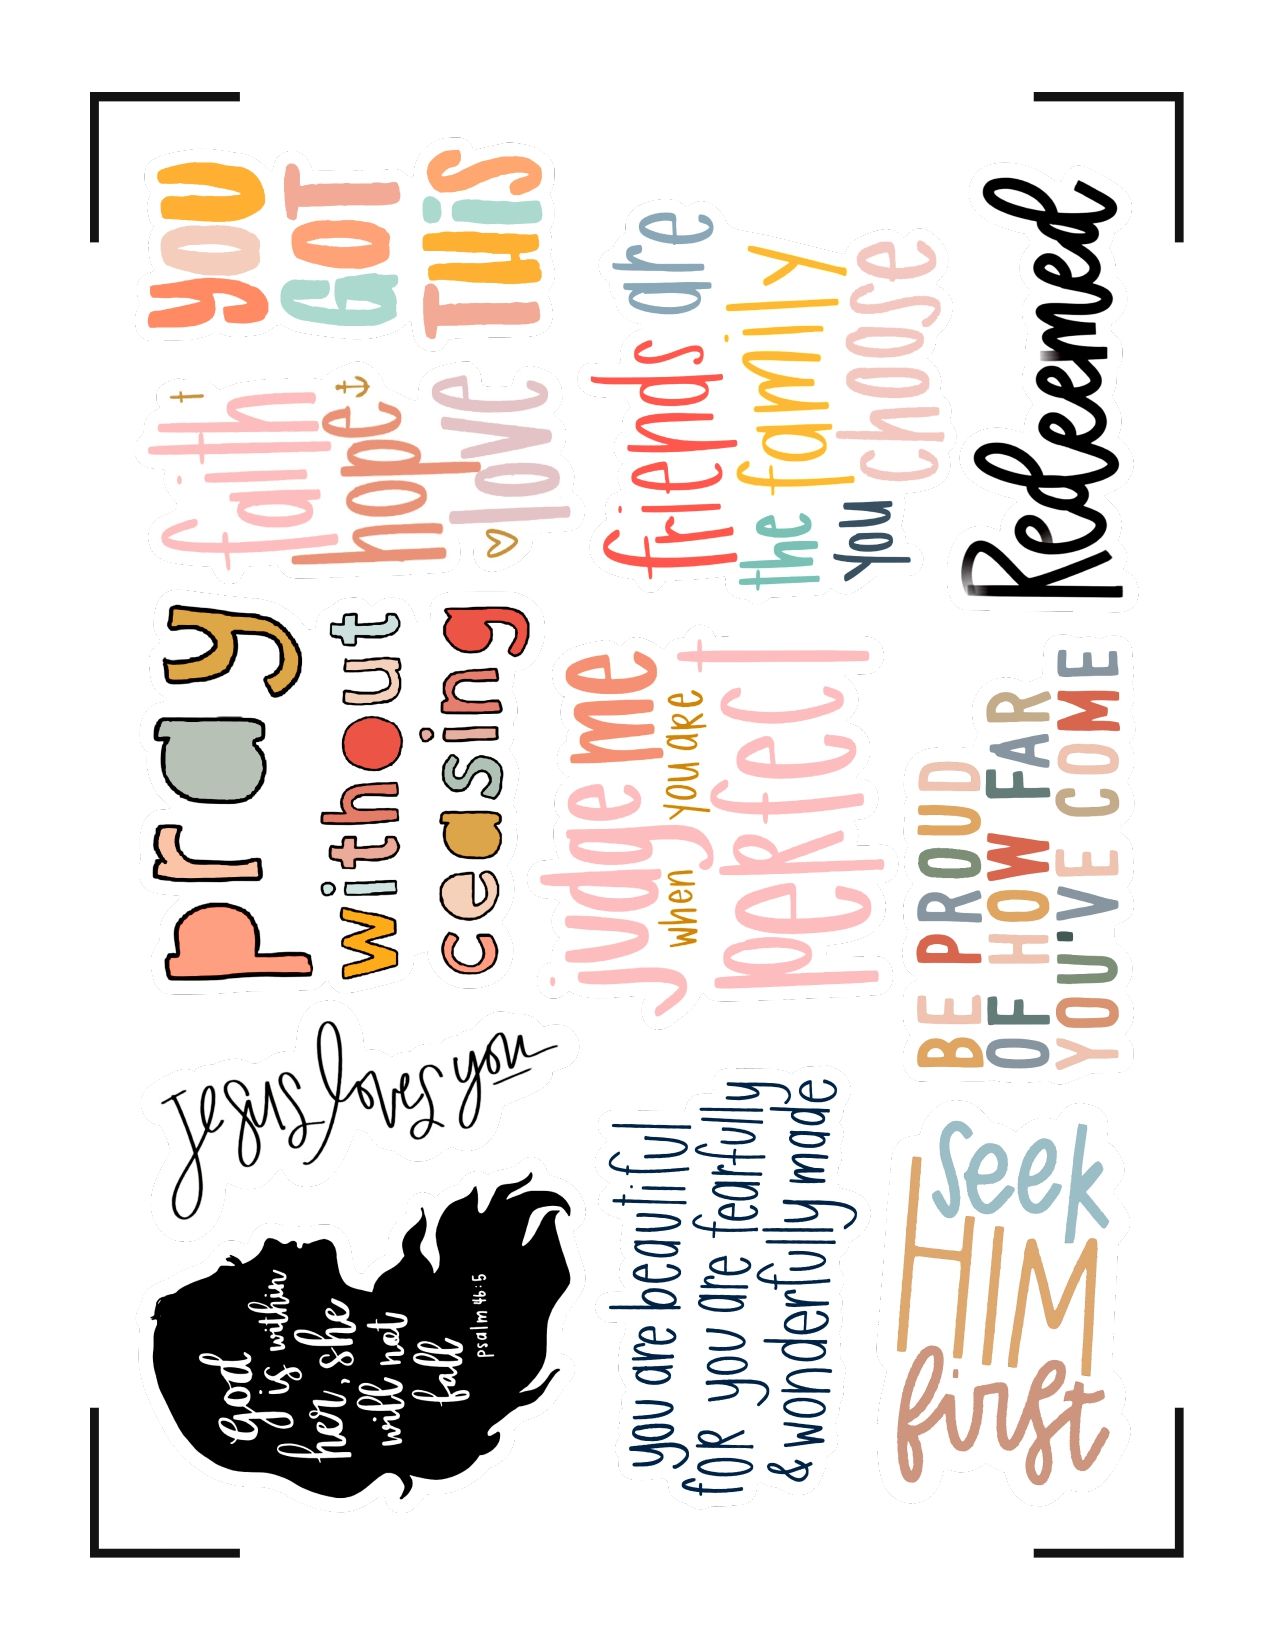 God
is within
her, she
will not
fall
psalm 46:5
Jesus
loves you
pray
without
ceasing
faith
hope
love
you
GOT
THis
you are beautiful
foR you are fearfully
& wonderfully made
judge me
when you are
peRfect
friends are
the family
you choose
seek
HIM
first
BE PROUD
OF HOW FAR
YOU'VE COME
Redeemed